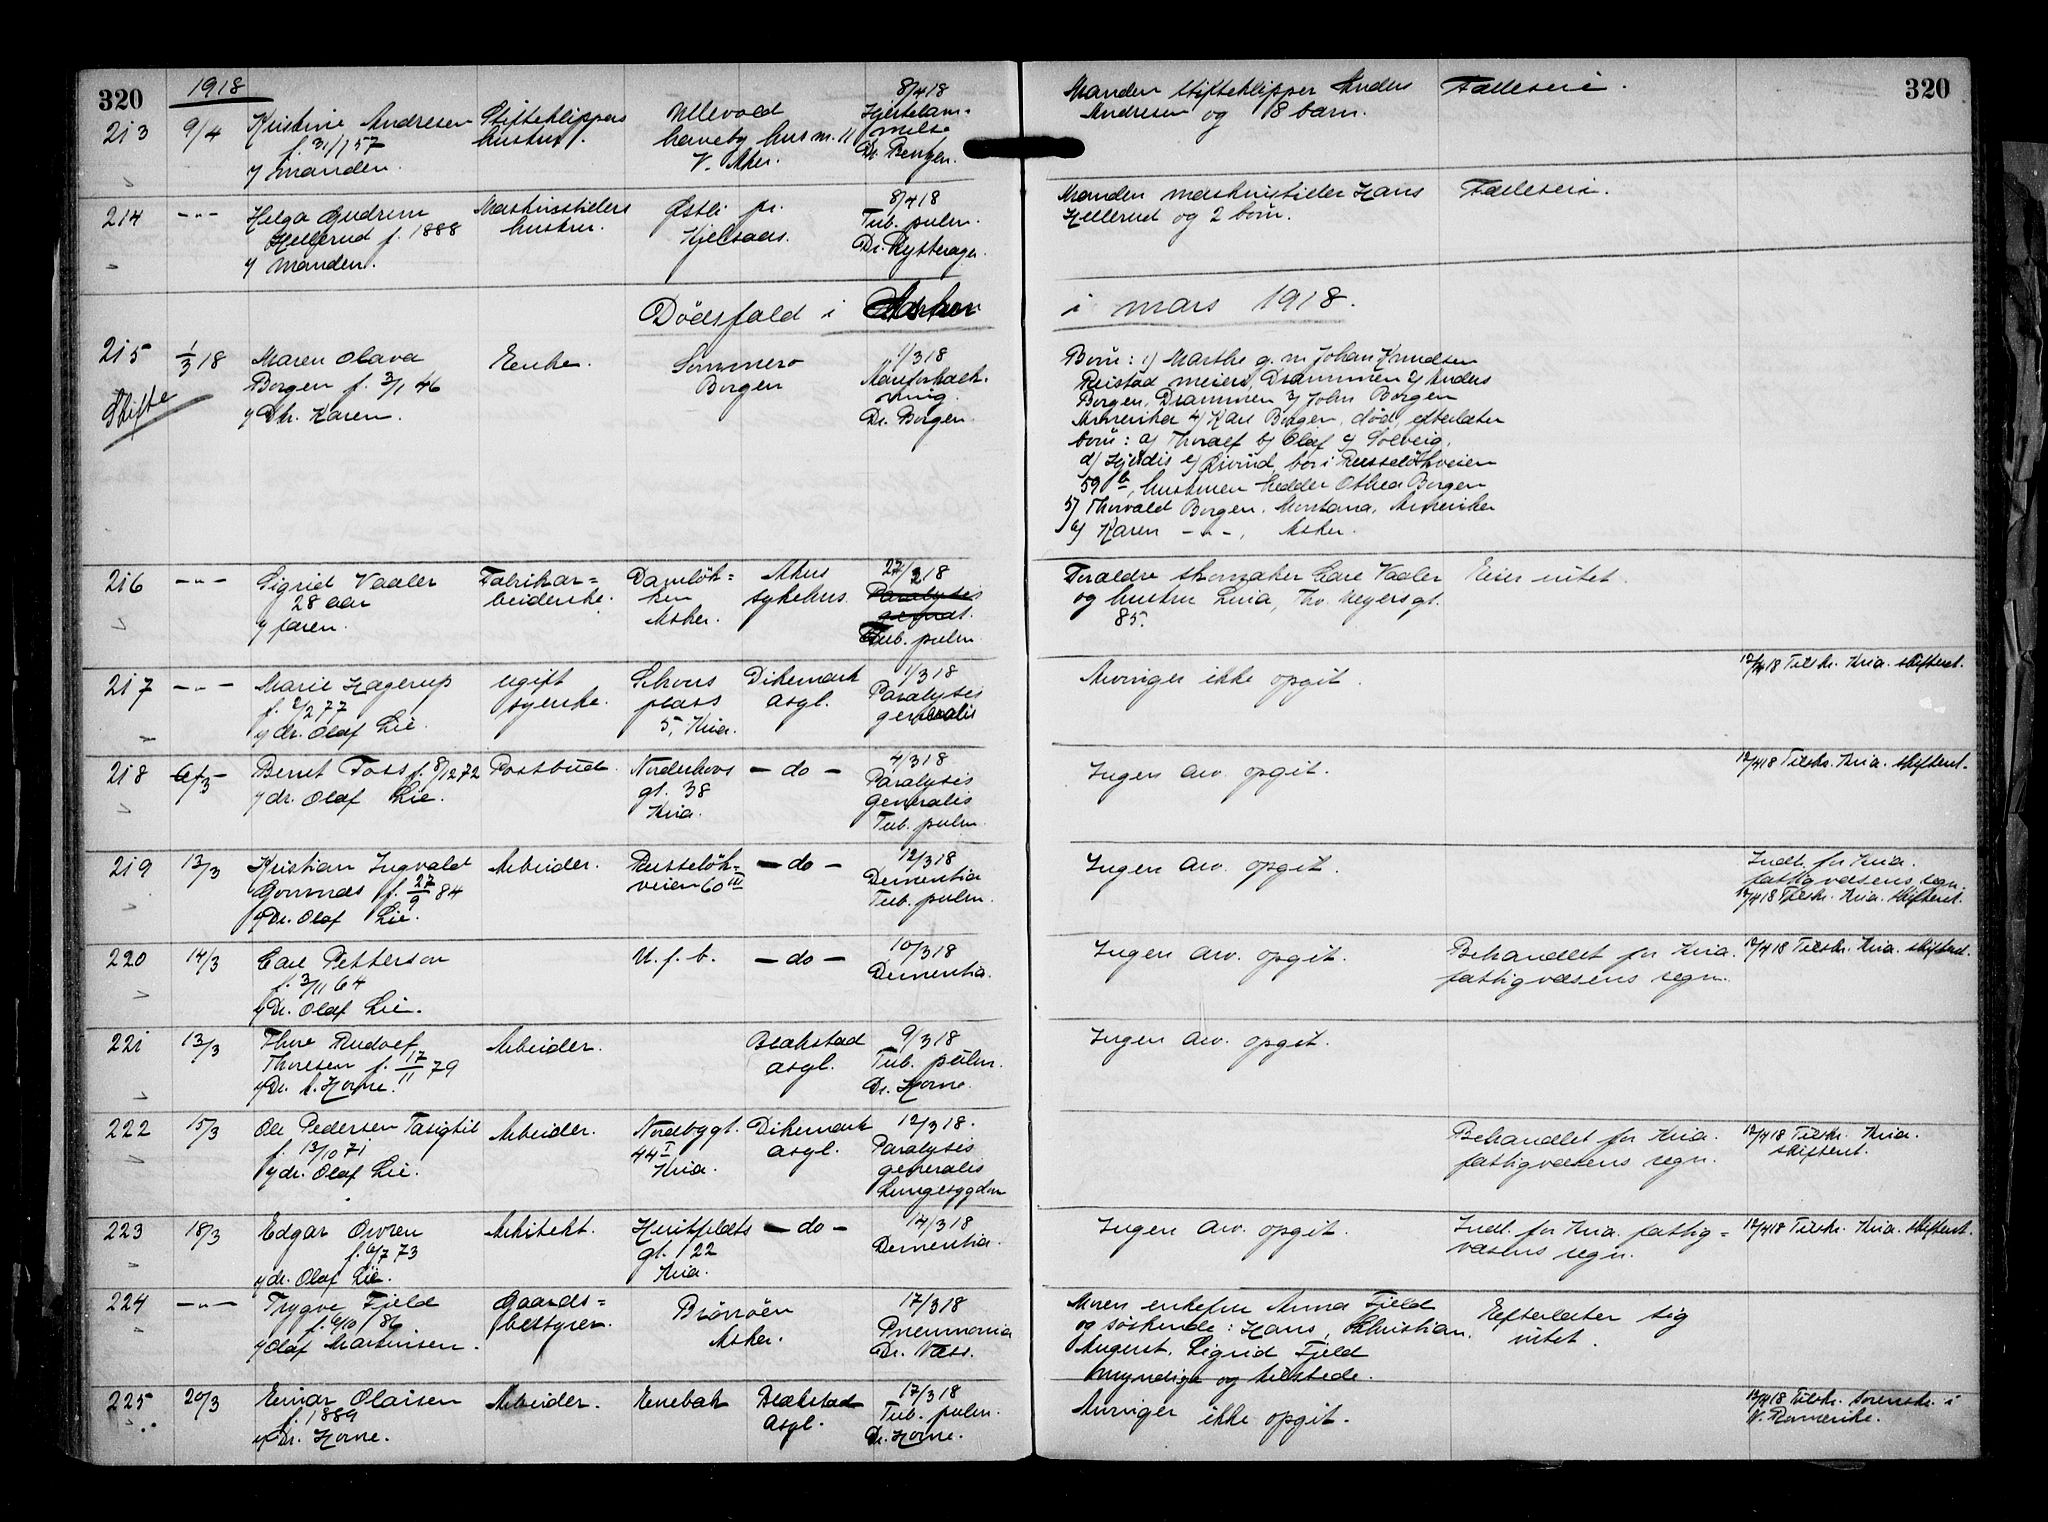 320
1918
320
213
9/4
Kristine Andresen
f. 31/1 57
v/ manden.
Stifteklippers
hustru.
Ullevold
haveby hus nr. 11
V. Aker.
8/4 18
Hjertelam-
melse
Dr. Bentzen.
Manden stifteklipper Anders
Andresen og 8 barn.
Fælleseie.
214
-"-
Helga Gudrun
Hellerud f. 1888
v/ manden.
Maskinstielers
hustru.
Østli pr.
Kjelsaas.
8/4 18
Tub. pulm.
Manden maskinstieler Hans
Hellerud og 2 born.
Fælleseie.
Dödsfald i Asker
i mars 1918.
215
Skifte
1/3 18
Maren Olava
Borgen f. 3/1 46
v/ Dtr. Karen.
Enke.
Sommero
Borgen
1/3 18
Dr. Borgen.
Born: 1/ Marthe g. m. Johan Knudsen
Reistad meieri, Drammen 2/ Anders
Borgen, Drammen 3/ John Borgen
Amerika 4/ Karl Borgen, död, efterlater
born: a/ Thoralf b/ Olaf c/ Solveig,
d/ Hjördis e/ Öivind, bor i Russelökveien
59 b, hustruen hedder Othea Borgen
5/ Thorvald Borgen, Montana, Amerika
6/ Karen -"-, Asker.
216
-"-
Sigrid Vaaler
28 aar
v/ faren.
Fabrikar=
beiderske.
Asker.
Akers
sykehus.
27/2 18
Paralysis
Tub. pulm.
Foræeldre skomaker Carl Vaaler
og hustru Lina, Thv. Meyersgt.
85.
Eier intet.
217
-"-
Marie Hagerup
f. 2/2 77
v/ dr. Olaf Lie.
ugift
syerske.
Schous
plass
5, Kria.
Dikemark
asyl.
1/3 18
Paralysis
generalis
Arvinger ikke opgit.
12/4 18 Tilskr. Kria. skifteret.
218
6/3
Bernt Foss f. 8/12 72
v/ dr. Olaf Lie.
Postbud.
Norderhovs
gt. 38
Kria.
- do -
4/3 18
Paralysis
generalis
Tub. pulm.
Ingen arv. opgit.
12/4 18 Tilskr. Kria. skifteret.
219
13/3
Kristian Ingvald
f. 27/9 84
v/ Dr. Olaf Lie.
Arbeider.
Russelök=
veien 60 III
- do -
12/3 18
Dementia
Tub. pulm.
Ingen arv. opgit.
Indl. for Kria.
fattigvæsens regn.
12/4 18 Tilskr. Kria. skifteret.
220
14/3
Carl Petterson
f. 3/11 64
v/ Dr. Olaf Lie.
U. f. b.
- do -
10/3 18
Dementia.
Ingen arv. opgit.
Behandlet for Kria.
fattigvæsens regn.
12/4 18 Tilskr. Kria. skifteret.
221
13/3
Thure Rudolf
Thoresen f. 17/11 79
v/ Dr. Horne.
Arbeider.
Blakstad
asyl.
9/3 18
Tub. pulm.
Dr. Horne.
Ingen arv. opgit.
222
15/3
Ole Pedersen
f. 13/10 71
v/ dr. Olaf Lie.
Arbeider.
Nordbygt.
44 I
Kria.
Dikemark
asyl.
12/3 18.
Paralysis
generalis
Lungesygdom
Behandlet for Kria.
fattigvæsens regn.
12/4 18 Tilskr. Kria.
skifteret.
223
18/3
Edgar
f. 6/7 73
v/ dr. Olaf Lie.
Arkitekt.
Huitfeldts
gt. 22
Kria.
- do -
14/3 18
Dementia.
Ingen arv. opgit.
Indl. for Kria. fattig=
væsens regn.
12/4 18 Tilskr. Kria. skifteret.
224
-"-
Trygve Fjeld
f. 6/10 86
v/ Olaf Martinsen.
Gaards=
bestyrer.
Brönöen
Asker.
17/3 18
Pneumonia
Dr. Vass.
Moren enkefru Anna Fjeld
og söskende: Hans, Christian,
August, Sigrid Fjeld
myndige og tilstede.
Efterlater sig
intet.
225
20/3
Einar Olaisen
f. 1889
v/ Dr. Horne.
Arbeider.
Enebak
Blakstad
asyl.
17/3 18
Tub. pulm.
Dr. Horne.
Arvinger ikke opgit.
12/4 18 Tilskr. sorenskr. i
N. Romerike.